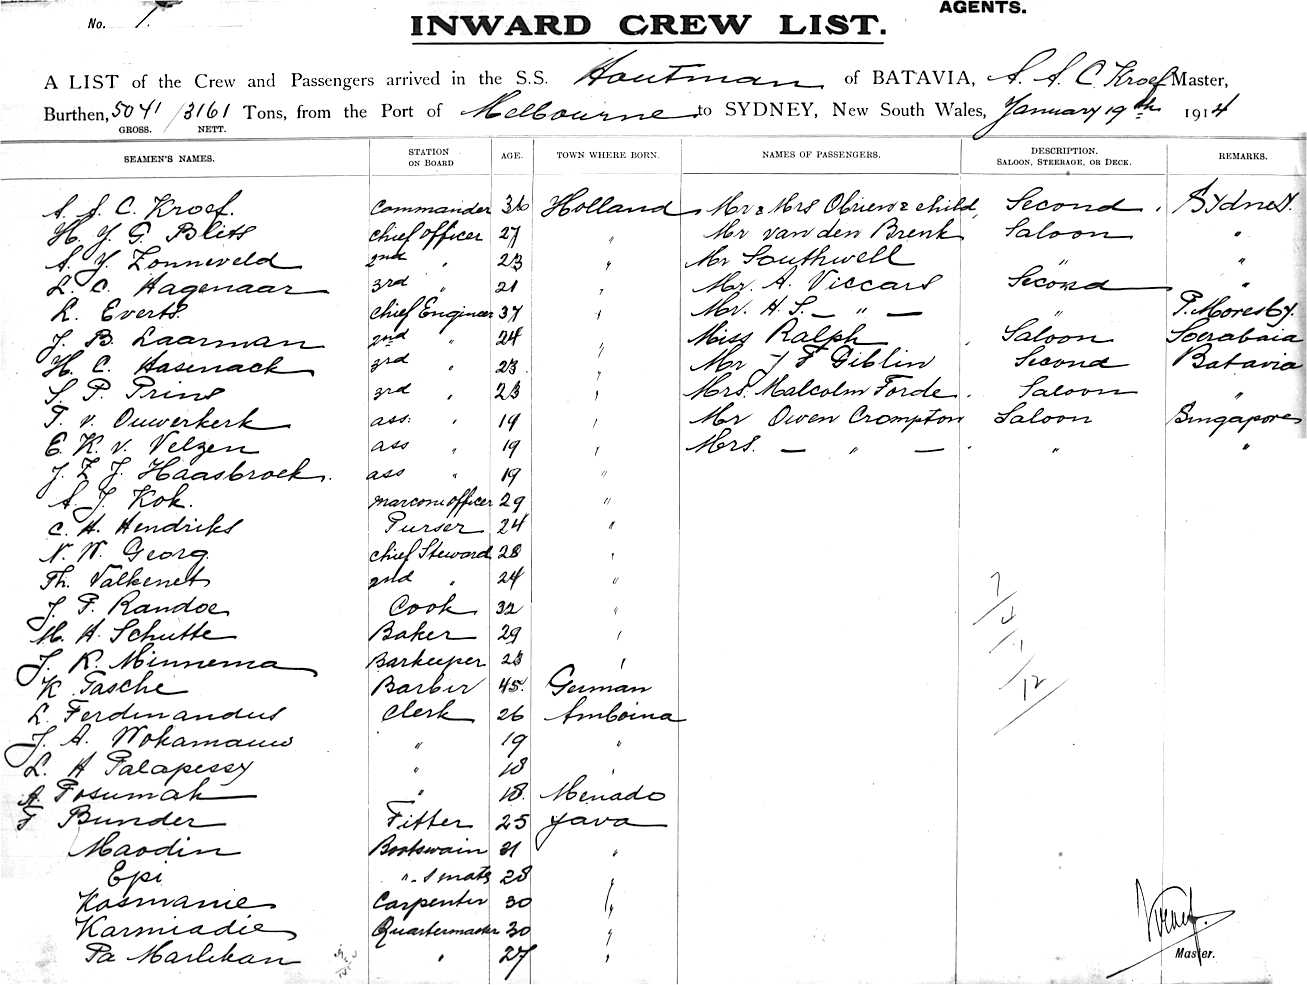 AGENTS.
No. 1.
INWARD CREW LIST.
A LIST of the Crew and Passengers arrived in the S.S. Houtman of BATAVIA, A. A. C. Kroef Master,
Burthen, 5041 / 3161 Tons, from the Port of Melbourne to SYDNEY, New South Wales, January 19th 1914
GROSS. NETT.
SEAMEN'S NAMES. STATION ON BOARD AGE. TOWN WHERE BORN. NAMES OF PASSENGERS. DESCRIPTION. SALOON, STEERAGE, OR DECK. REMARKS.
A. A. C. Kroef. Commander 36 Holland Mr & Mrs Obriew & child, Second Sydney.
H. J. G. Blits chief officer 27 " Mr van den Brenk Saloon "
A. J. Zonneveld 2nd " 23 " Mr Southwell " "
L. C. Hagenaar 3rd " 21 " Mr. A. Viccars Second "
L. Everts chief Engineer 37 " Mr. H. S. — " — " P. Moresby.
J. B. Laarman 2nd " 24 " Miss Ralph Saloon Soerabaia
H. C. Hasenack 3rd " 23 " Mr J F Giblin Second Batavia
S. P. Prins 3rd " 23 " Mrs. Malcolm Forde Saloon "
P. v. Ouwerkerk ass. " 19 " Mr Owen Crompton Saloon Singapore
E. K. v. Velzen ass " 19 " Mrs. — " — " "
J. Z. J. Haasbroek. ass " 19 "
A. J. Kok. marconi officer 29 "
C. H. Hendriks Purser 24 "
N. W. Georg. chief Steward 28 "
Th. Valkenet 2nd " 24 "
J. P. Randoe Cook 32 "
M. H. Schutte Baker 29 "
J. R. Minnema Barkeeper 23 "
K. Tasche Barber 45. German
L. Ferdinandus Clerk 26 Amboina
J. A. Wokamauw " 19 "
L. H Palapessy " 18 "
A. Posumah " 18. Menado
F Bunder Fitter 25 Java
Maodin Bootswain 31 "
Epi "-s mate 28 "
Kasmanie Carpenter 30 "
Karmiadie Quartermaster 30 "
Pa Marlikan " 27 "
7
4
1
12
Kroef.
Master.